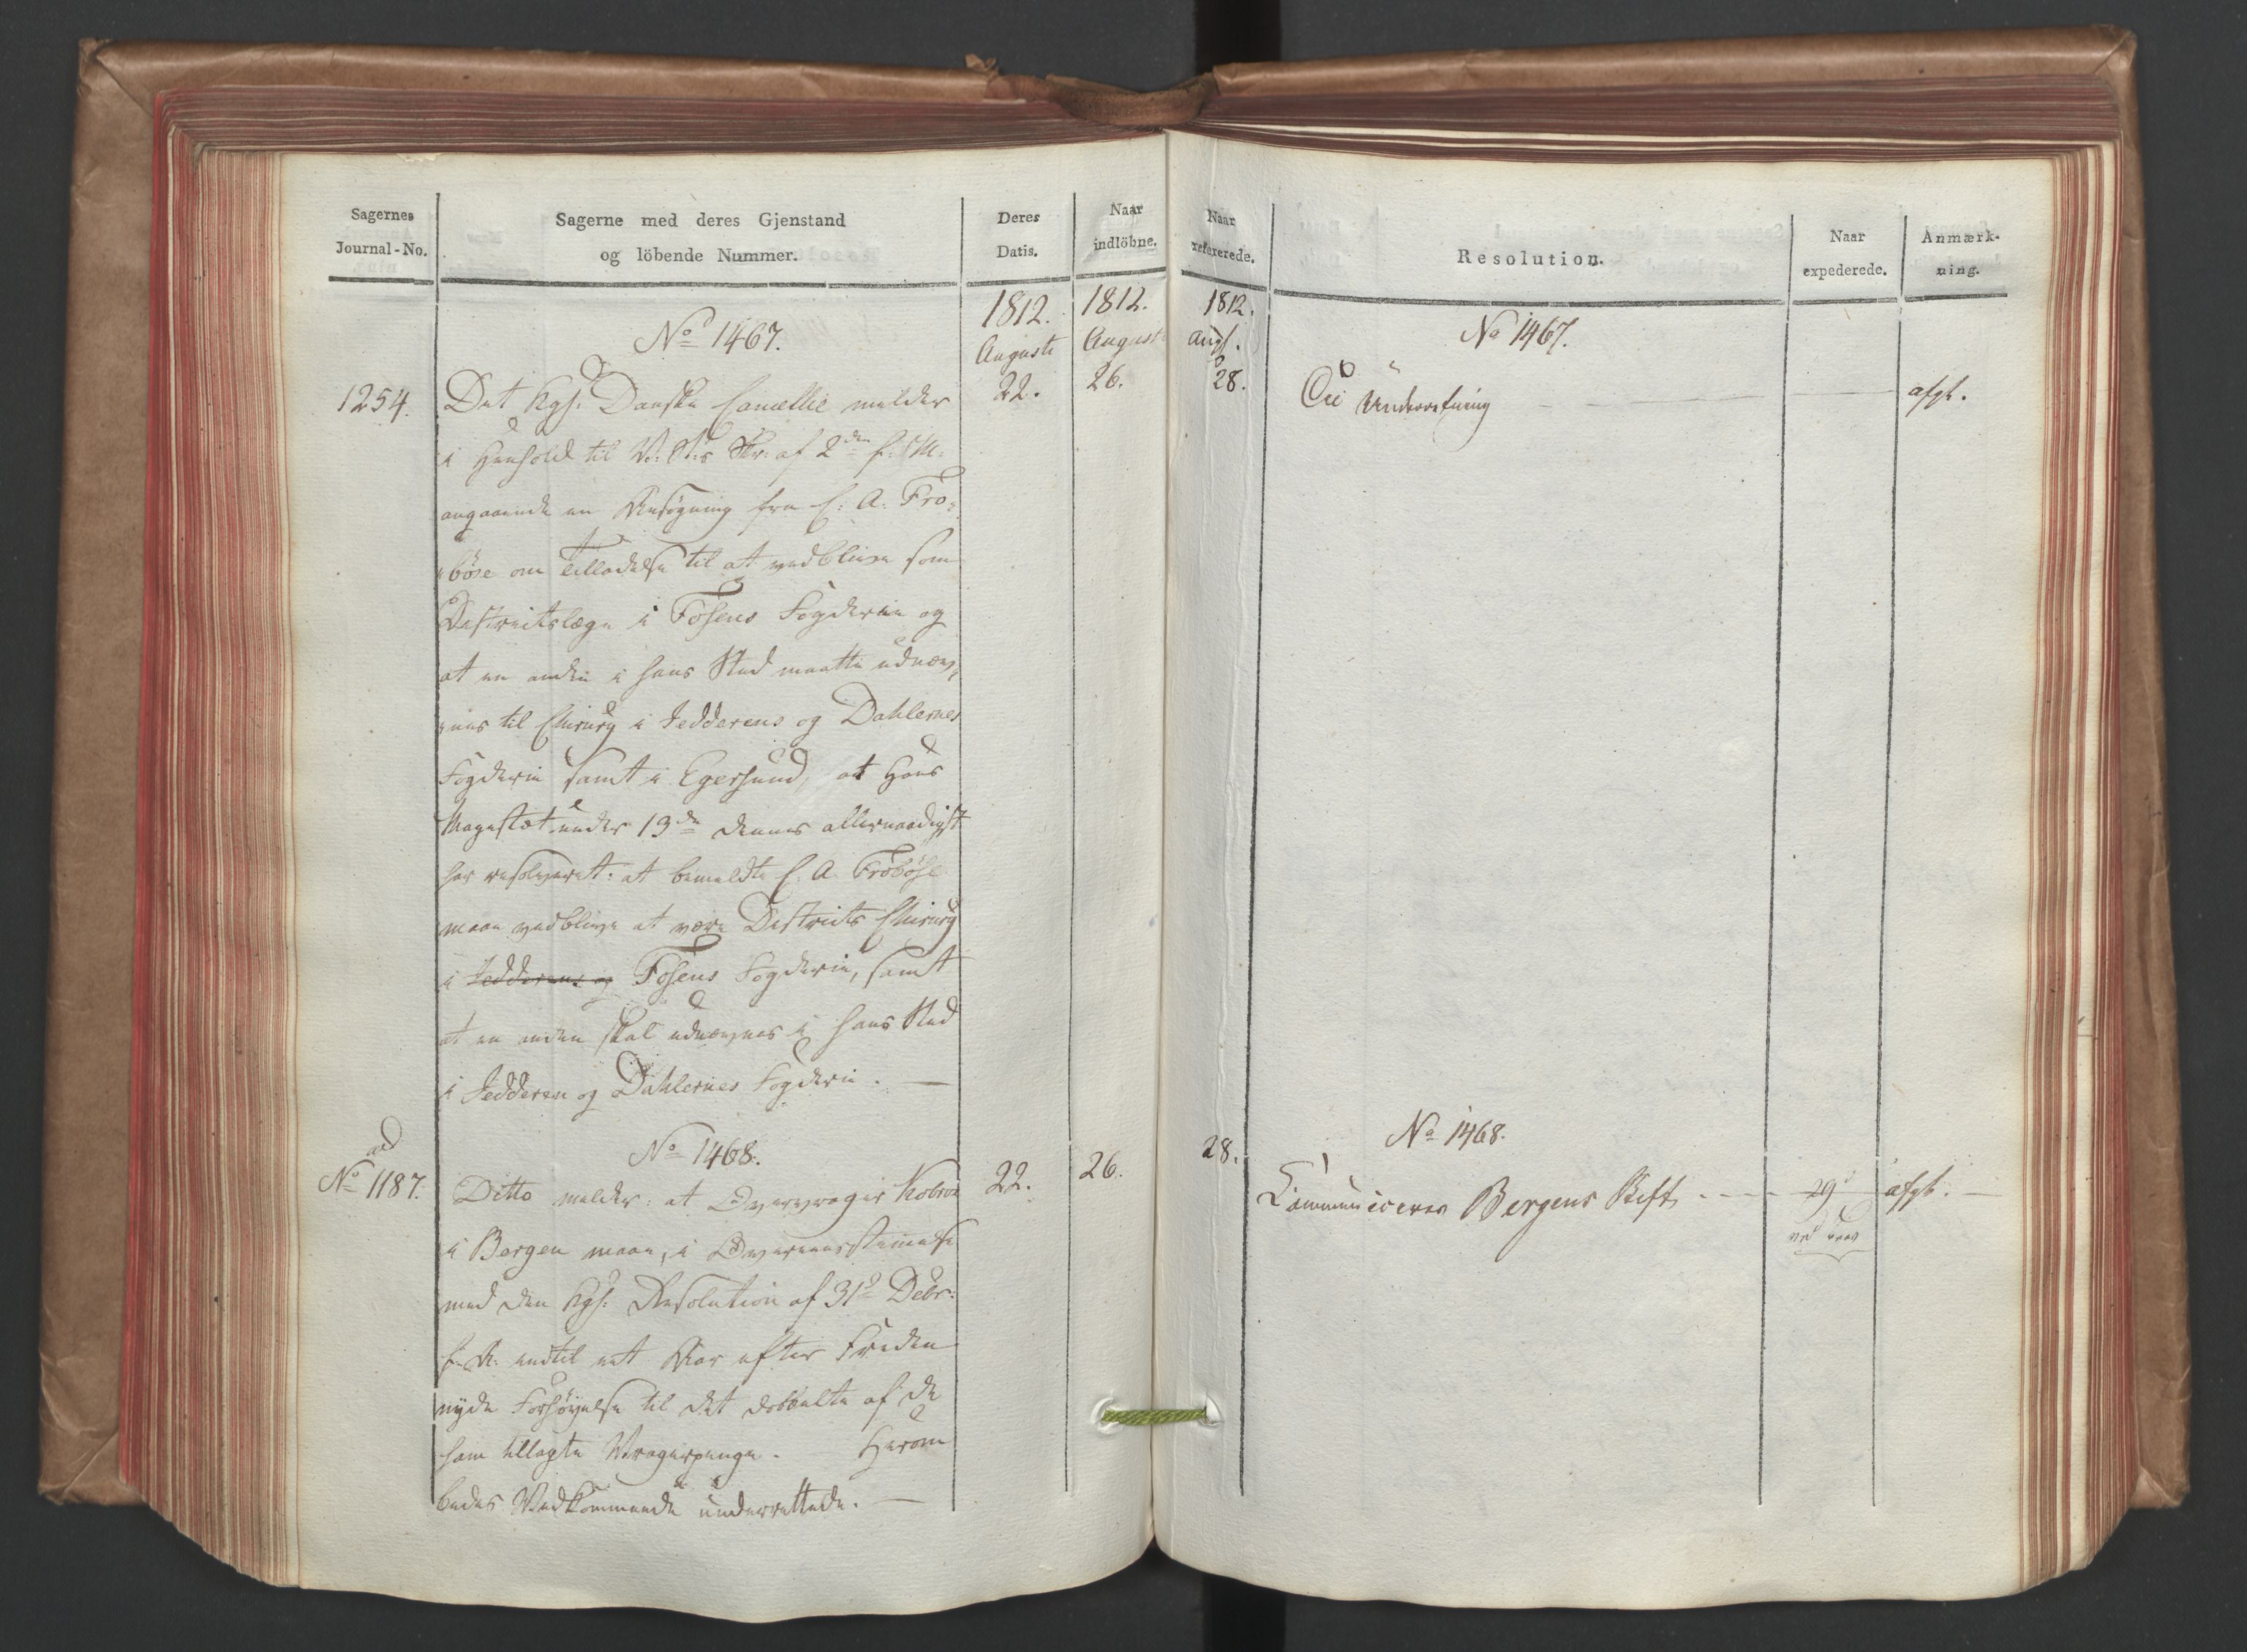 Sagernes
Journal-No.
Sagerne med deres Gjenstand
og löbende Nummer.
Deres
Datis.
Naar
indlöbne.
1812.
Augusti
1812.
Augusti
No 1467.
1254.
Det Kgl. Danske Cancellie melder
22.
26.
i Henhold til V: St:s Skr: af 2den f: M:
angaaende en Ansøgning fra C: A. Fro-
böse om Tilladelse til at vedblive som
Districtslæge i Fosens Fogderie og
at en anden i hans Sted maatte udnæv-
nes til Chirurg i Jedderens og Dahlernes
Fogderie samt i Egersund, at Hans
Majestæt under 13de dennes allernaadigst
har resolveret: at bemeldte C. A. Froböse
maae vedblive at være Districts Chirurg
i Jedderens og Fosens Fogderie, samt
at en anden skal udnævnes i hans Sted
i Jedderen og Dahlernes Fogderie. —
ad
No 1187.
No 1468.
Ditto melder: at Overvrager Kobroe
22.
26.
i Bergen maae, i Overeensstemmelse
med den Kgl: Resolution af 31te Debr:
f: A: indtil eet Aar efter Freden
nyde Forhøyelse til det dobbelte af de
ham tillagte Vragerpenge. Herom
bedes Vedkommende underrettede. —
Naar
refererede.
Resolution.
Naar
expederede.
Anmærk-
ning.
1812.
Aug.
28.
No 1467.
Til Underretning
afgl.
28.
No 1468.
Communiceres Bergens Stift
29
afgl. —